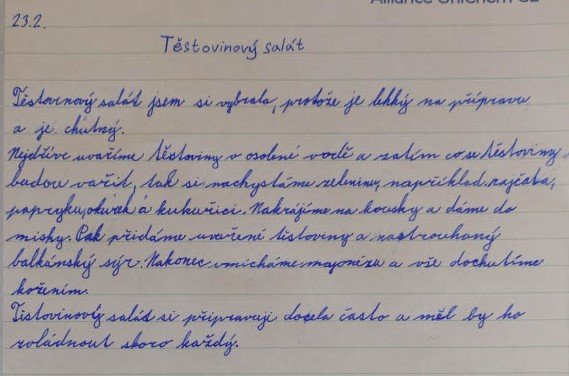 Alliance UniChem CZ
23.2.
Těstovinový salát
Těstovinový salát jsem si vybrala, protože je lehký na přípravu
a je chutný.
Nejdříve uvaříme těstoviny v osolené vodě a zatím co se těstoviny
budou vařit, tak si nachystáme zeleninu, například rajčata,
papryku, okurek a kukuřici. Nakrájíme na kousky a dáme do
mishy. Pak přidáme uvařené těstoviny a nastrouhaný
balkánský sýr. Nakonec vmícháme majonézu a vše dochutíme
kořením.
Těstovinový salát si připravuji docela často a měl by ho
zvládnout skoro každý.